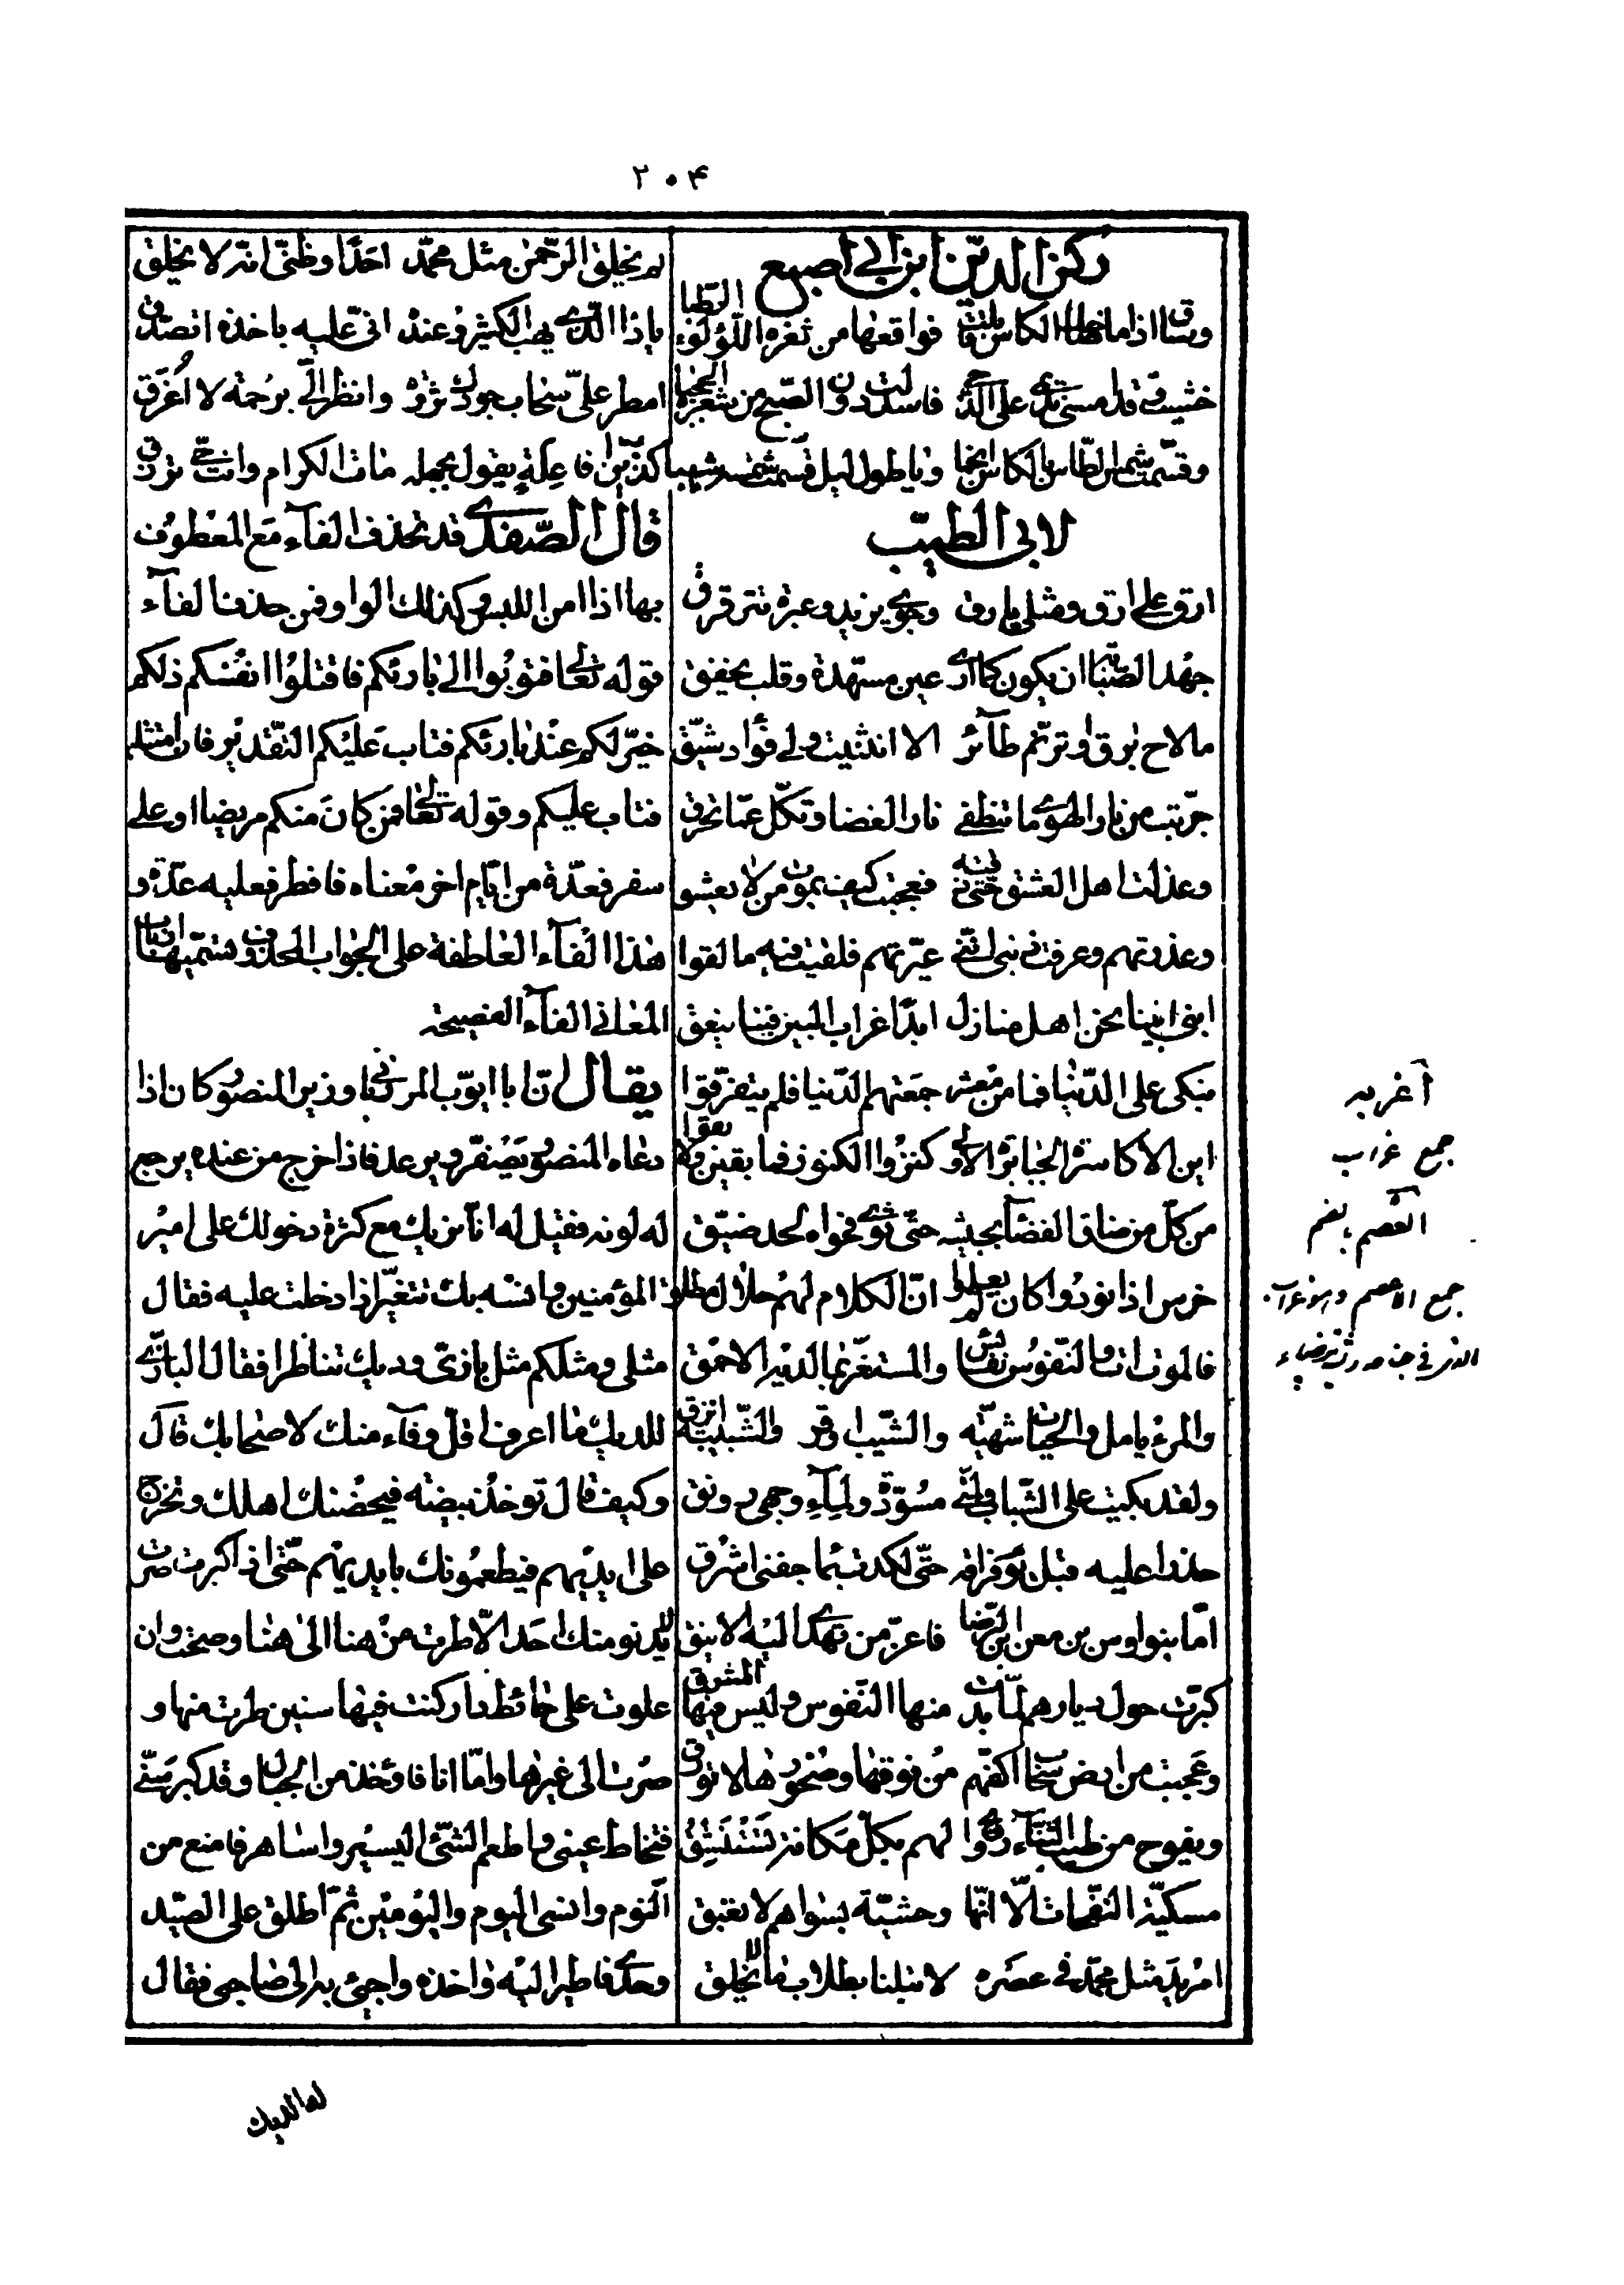 ۲۰۴
ركن الدين ابن ابي اصبع
وساق اذا ما الكاس قابلت فواقعها من ثغره اللؤلؤ الرطبا
خشيت وقد على الدجى فاسدلت دون الصبح من شعره الحجبا
وقسمت شمس الطاس بالكاس انجما ويا طول ليل قسمت شمسه شهبا
لابي الطيب
ارق على ارق ومثلي يارق وجوى يزيد وعبرة تترقرق
جهد الصبابة ان يكون كما ارى عين مسهدة وقلب يخفق
ما لاح برق او ترنم طآئر الا انثنيت ولي فؤاد شيق
جربت من نار الهوى ما تنطفى نار الغضا وتكل عما تحرق
وعذلت اهل العشق حتى ذقته فعجبت كيف يموت من لا يعشق
وعذرتهم وعرفت ذنبي انني عيرتهم فلقيت فيه ما لقوا
ابني ابينا نحن اهل منازل ابدا غراب البين فينا ينعق
نبكي على الدنيا فما من معشر جمعتهم الدنيا فلم يتفرقوا
اين الاكاسرة الجبابرة الاولى كنزوا الكنوز فما بقين ولا بقوا
من كل من ضاق الفضآ بجيشه حتى ثوى فحواه لحد ضيق
خرس اذا نودوا كان لم يعلموا ان الكلام لهم حلال مطلق
فالموت ات والنفوس نفائس والمستغر بما لديه الاحمق
والمرء يامل والحيات شهية والشيب اوقر والشبيبة انزق
ولقد بكيت على الشباب ولمتي مسودة ولمآء وجهي رونق
حذرا عليه قبل يوم فراقه حتى لكدت بمآ جفني اشرق
اما بنوا وس بن معن ابن الرضا فاعز من تهدى اليه الاينق
كبرت حول ديارهم لما بدت منها النفوس وليس منها المشرق
وعجبت من ارض سحاب اكفهم من فوقها وصخورها لا تورق
ويفوح من طيب الثنآء روائح لهم بكل مكانة تستنشق
مسكية النفحات الا انها وحشية بسواهم لا تعبق
امريد مثل محمد في عصره لا تبلنا بطلاب ما لا يلحق
لم يخلق الرحمن مثل محمد احدا وظني انه لا يخلق
يا ذا الذي يهب الكثير وعنده اني عليه باخذه اتصدق
امطر علي سحاب جودك ثرة وانظر الي برحمة لا اغرق
كذب ابن فاعلة يقول بجهله مات الكرام وانت حي ترزق
قال الصفدي قد تحذف الفآء مع المعطوف
بها اذا امن اللبس وكذلك الواو فمن حذف الفآء
قوله تعالى فتوبوا الى بارئكم فاقتلوا انفسكم ذلكم
خير لكم عند بارئكم فتاب عليكم التقدير فامتثلتم
فتاب عليكم وقوله تعالى فمن كان منكم مريضا او على
سفر فعدة من ايام اخر معناه فافطر فعليه عدة و
هذا الفآء العاطفة على الجواب المحذوف وتسميها ارباب
المعاني الفآء الفصيحة
يقال ان ابا ايوب المرزباني وزير المنصور كان اذا
دعاه المنصور يصفر ويرعد فاذا خرج من عنده يرجع
له لونه فقيل له انا نريك مع كثرة دخولك على امير
المؤمنين وانسه بك تتغير اذا دخلت عليه فقال
مثلي ومثلكم مثل بازي وديك تناظرا فقال البازي
للديك ما اعرف اقل وفآء منك لاصحابك قال
وكيف قال توخذ بيضة فيحضنك اهلك وتخرج
على ايديهم فيطعمونك بايديهم حتى اذا كبرت صرت
لا يدنو منك احد الا طرت من هنا الى هنا وصحت وان
علوت على حائط دار كنت فيها سنين طرت منها و
صرت الى غيرها واما انا فاوخذ من الجبال وقد كبر سني
فتخاط عيني واطعم الشئ اليسير واساهر فامنع من
النوم وانسى اليوم واليومين ثم اطلق على الصيد
وحدي فاطير اليه واخذه واجئ به الى صاحبي فقال
له الديك
اغربه
جمع غراب
العصم بضم
جمع الاعصم وهو غراب
الذي في جناحه ريشة بيضاء